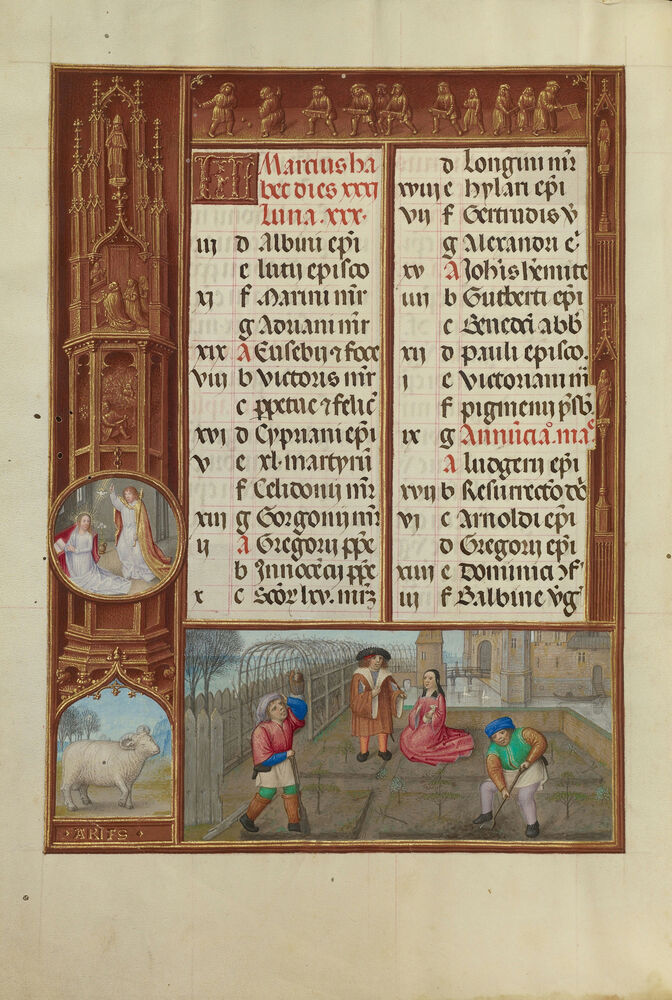 KL Marcius ha
bet dies xxxj
Luna . xxx.
iij d Albini epi
e lutij episco
xj f Marini mr
g Adriani mr
xix A Eusebij ⁊ foce
viij b victoris mr
c ppetue ⁊ felic
xvj d Cypriani epi
v e xl. martyru
f Celidonij mr
xiij g Gorgonij mr
ij A Gregorij ppe
b Innocecij ppe
x c Scor lxv. mr
d Longini mr
xviij e hylari epi
vij f Gertrudis v
g Alexandri e
xv A Johis hemite
iiij b Gutberti epi
c Benedci abb
xij d pauli episco.
j e victoriani m
f pigmenij psb
ix g Annucia. ma
A ludgerij epi
xvij b Resurrecto do
vj c Arnoldi epi
d Gregorij epi
xiiij e Dominici of
iij f Balbine vg
ARIES